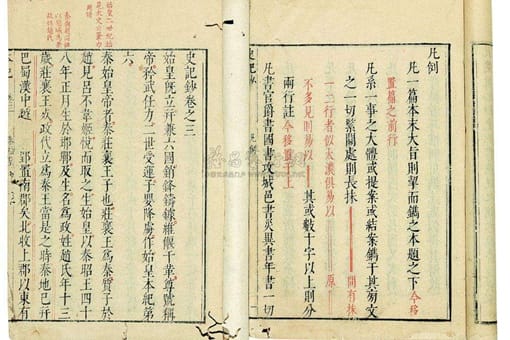 凡例
凡一篇本末大旨則揭而鐫之本題之下今移
置篇之前行
凡系一事之大體或提案或結案鐫于其旁文
之一切緊關處則長抹 間有抹
一二行者似太漶俱易以 原
不多見則易以 其或數十字以上則分
兩行註 今移置 上
凡書官爵書國書攻城邑書災異書年書一切
史記鈔卷之三
始皇既立并兼六國銷鋒鑄鐻維偃干革尊號稱
帝矜武任力二世受運子嬰降虜作始皇本紀第
六
秦始皇帝者秦莊襄王子也莊襄王為秦質子於
趙見呂不韋姬悅而取之生始皇以秦昭王四十
八年正月生於邯鄲及生名為政姓趙氏年十三
歲莊襄王死政代立為秦王當是之時秦地已并
巴蜀漢中越 郢置南郡矣北收上郡以東有